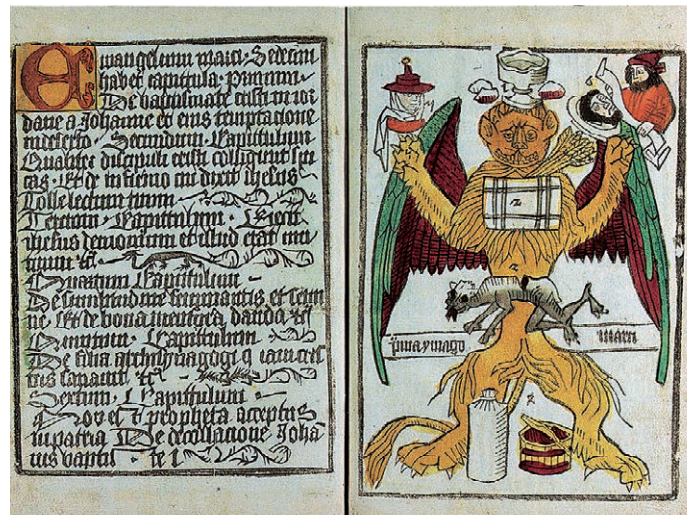 Ewangelium marci · Sedecim
habet capitula · Primum ·
De baptismate cristi in ior
dane a Johanne et eius temptacione
in deserto · Secundum · Capitulum
Qualiter discipuli cristi colligerunt spi
cas · Et de infirmo cui dixit ihesus
Tolle lectum tuum
Tercium · Capitulum · Eiecit
ihesus demonium et illud erat mu
tum &c ·
Quartum · Capitulum
De similitudine seminantis et semi
ne · Et de bona mensura danda &c
Quintum · Capitulum
De filia archisinagogi q
&c
Sextum · Capitulum ·
propheta acceptus
in patria De decollacione Joha
nis baptis
pma ymago marci